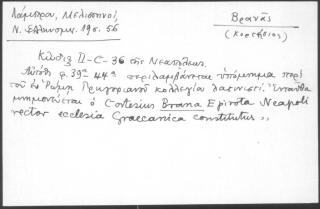 Λάμπρου, Μελισσηνοί,
Ν. Ελληνομν. 190. 56
Βρανᾶς
(Κορτήσιος)
Κώδιξ II-C-36 τῆς Νεαπόλεως.
Αὐτόθι φ. 39ᵃ-44ᵃ περιλαμβάνεται ὑπόμνημα περὶ
τοῦ ἐν Ῥώμῃ Γρηγοριανοῦ κολλεγίου λατινιστί. Ἐνταῦθα
μνημονεύεται ὁ Cortesius Brana Epirota Neapoli
rector ecclesia Graecanica constitutus „